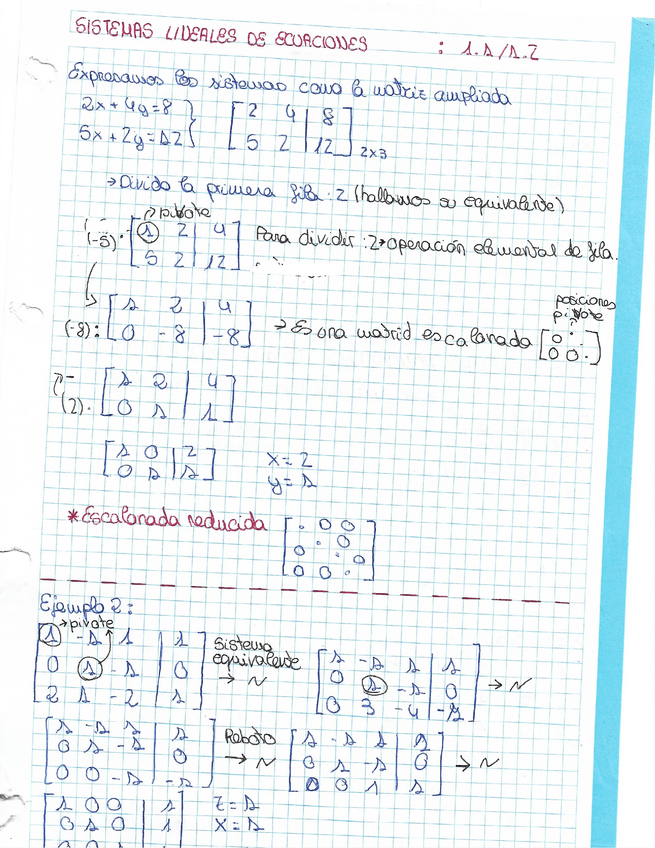 SISTEMAS LINEALES DE ECUACIONES : 1.1/1.2
Expresamos los sistemas como la matriz ampliada
2x+4y=8 } [2 4 | 8]
5x+2y=12 } [5 2 | 12] 2x3
→Divido la primera fila :2 (hallamos su equivalente)
→pivote
(-5)· [1 2 | 4] Para dividir :2→operación elemental de fila.
[5 2 | 12]
[1 2 | 4] posiciones pivote
(-8): [0 -8 | -8] → Es una matriz escalonada [0 · 0 0 ·]
[1 2 | 4]
(2)· [0 1 | 1]
[1 0 | 2] x=2
[0 1 | 1] y=1
*Escalonada reducida [· 0 0
· 0
0 · 0
0 0 ·]
Ejemplo 2:
→pivote
[1 -1 1 | 1] Sistema equivalente [1 -1 1 | 1]
[0 1 -1 | 0] → ~ [0 1 -1 | 0] → ~
[2 1 -2 | 1] [0 3 -4 | -1]
[1 -1 1 | 1] [1 -1 1 | 1]
[0 1 -1 | 0] → ~ [0 1 -1 | 0] → ~
[0 0 -1 | -1] [0 0 1 | 1]
[1 0 0 | 1] z=1
[0 1 0 | 1] x=1